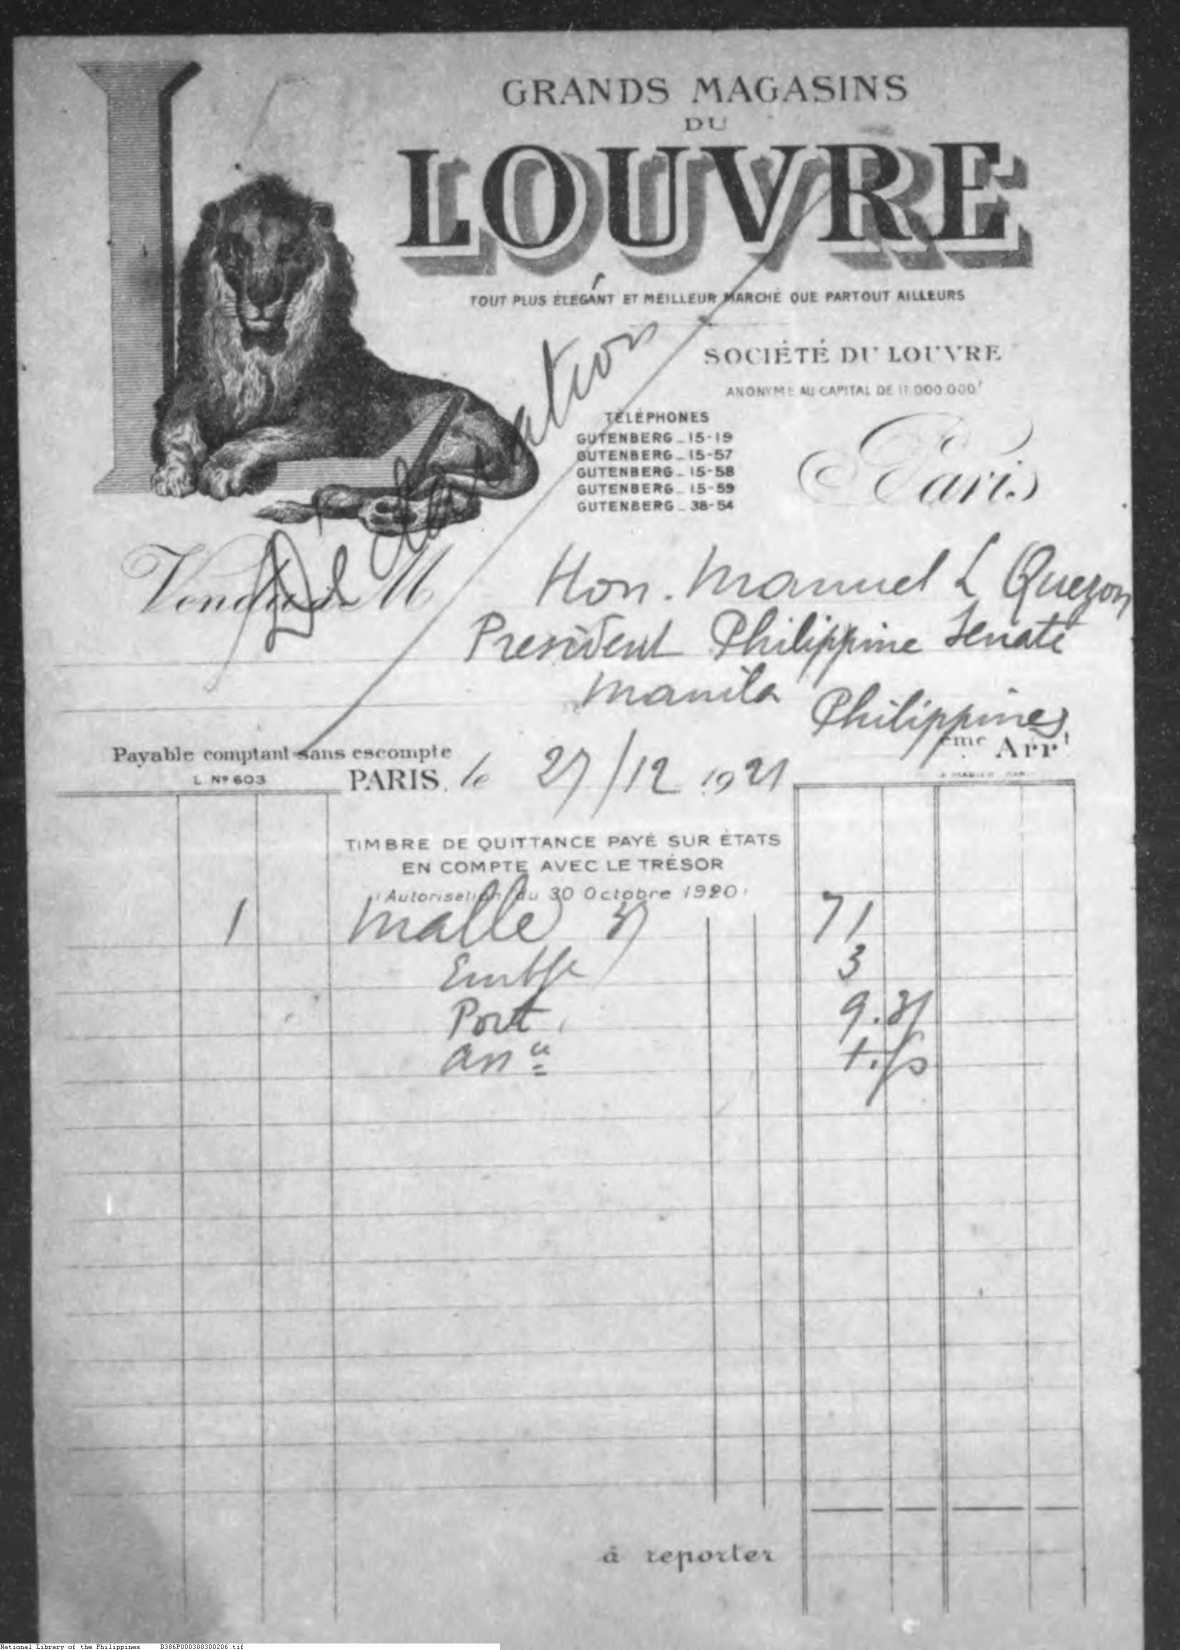 GRANDS MAGASINS
DU
LOUVRE
TOUT PLUS ÉLÉGANT ET MEILLEUR MARCHÉ QUE PARTOUT AILLEURS
SOCIÉTÉ DU LOUVRE
ANONYME AU CAPITAL DE 17.000.000f
TÉLÉPHONES
GUTENBERG_15-19
GUTENBERG_15-57
GUTENBERG_15-58
GUTENBERG_15-59
GUTENBERG_38-54
Paris
Vendu à M
Hon. Manuel L Quezon
President Philippine Senate
Manila Philippines
Payable comptant sans escompte
ème Arrt
L. Nº 603
PARIS, le 27/12 1921
TIMBRE DE QUITTANCE PAYÉ SUR ÉTATS
EN COMPTE AVEC LE TRÉSOR
(Autorisation du 30 Octobre 1920)
1 malle 71
3
Port 9.
à reporter
National Library of the Philippines B386P000388300206.tif